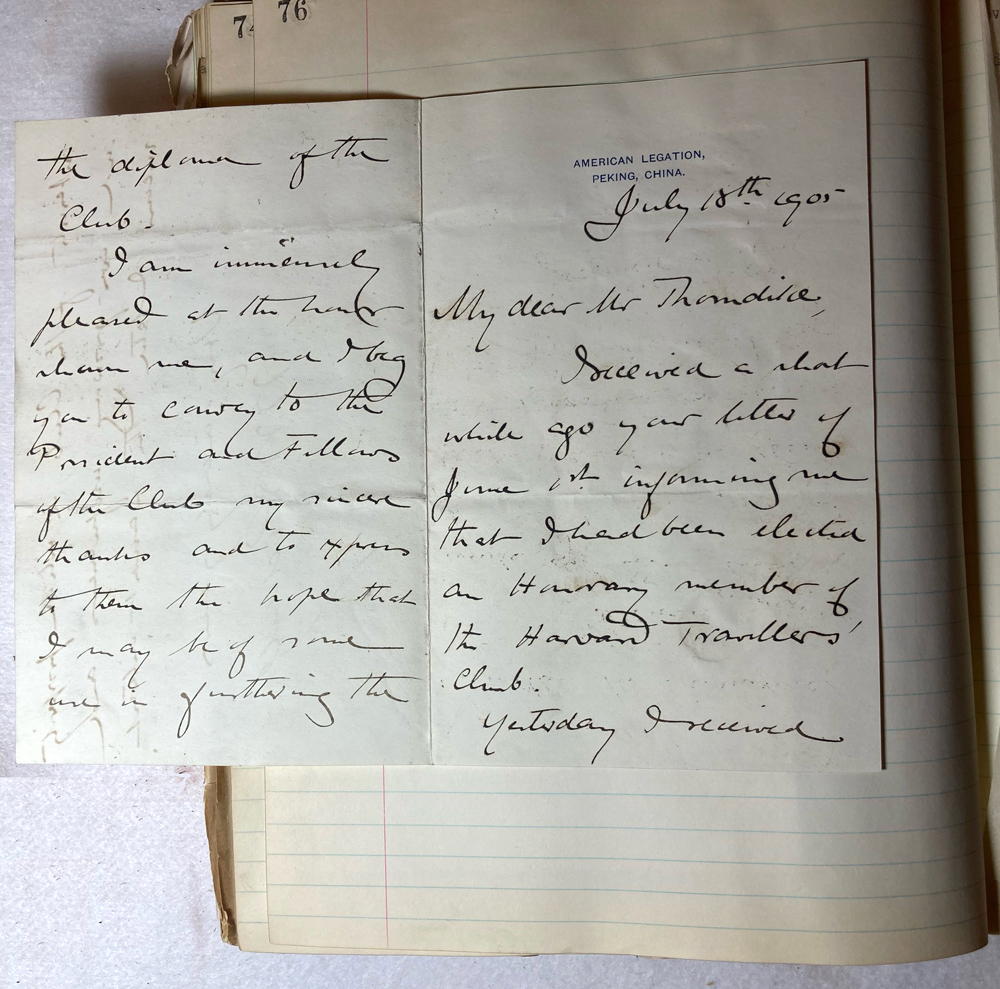 74
76
AMERICAN LEGATION,
PEKING, CHINA.
July 18th 1905
My dear Mr Thorndike,
I received a short
while ago your letter of
June 1st informing me
that I had been elected
an Honorary member of
the Harvard Travellers'
Club.
Yesterday I received
the diploma of the
Club.
I am immensely
pleased at the honor
shown me, and I beg
you to convey to the
President and Fellows
of the Club my sincere
thanks and to express
to them the hope that
I may be of some
use in furthering the